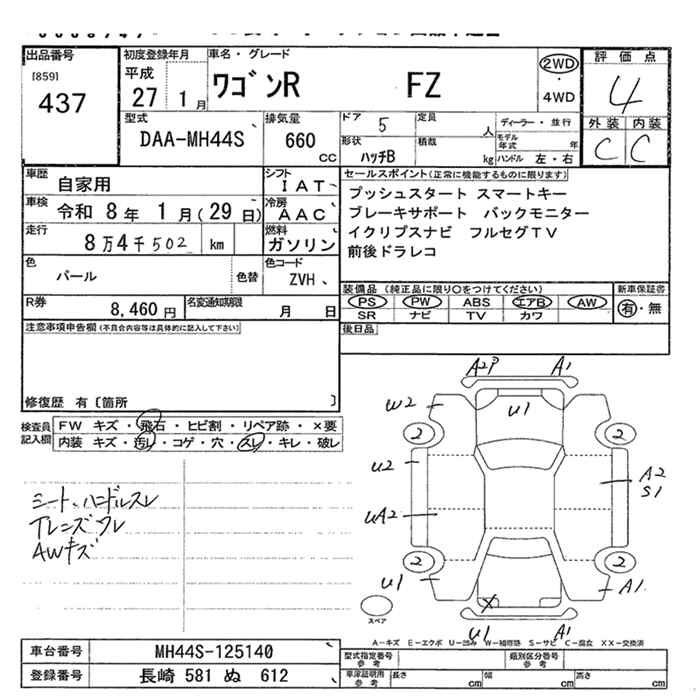 出品番号
[859]
437
初度登録年月
平成
27 1月
車名・グレード
ワゴンR FZ
2WD
4WD
評価点
4
外装 内装
C C
型式
DAA-MH44S
排気量
660
CC
ドア 5
定員 人
ディーラー・並行
形状
ハッチB
積載 kg
モデル年式 年
ハンドル 左・右
車歴
自家用
シフト
IAT
車検
令和 8年 1月(29日)
冷房
AAC
走行
8万4千502 km
燃料
ガソリン
色
パール
色替
色コード
ZVH
R券
8,460円
名変通知期限
月 日
セールスポイント(正常に機能するものに限ります)
プッシュスタート スマートキー
ブレーキサポート バックモニター
イクリプスナビ フルセグTV
前後ドラレコ
装備品 (純正品に限り〇をつけてください)
PS PW ABS エアB AW
SR ナビ TV カワ
新車保証書
有・無
後日品
注意事項申告欄(不具合内容等は具体的に記入して下さい)
修復歴 有〔箇所 〕
検査員記入欄
FW キズ・飛石・ヒビ割・リペア跡・×要
内装 キズ・汚レ・コゲ・穴・スレ・キレ・破レ
シート、ハンドルスレ
AWキズ
A2P A1
U2 U1
2 2
U2
A2
S1
UA2
2 2
U1 X A1
U1 A1
スペア
A-キズ E-エクボ U-凹み W-補修跡 S-サビ C-腐食 XX-交換済
車台番号
MH44S-125140
登録番号
長崎 581 ぬ 612
型式指定番号
参考
類別区分番号
参考
車庫証明用
参考
長さ cm
幅 cm
高さ cm